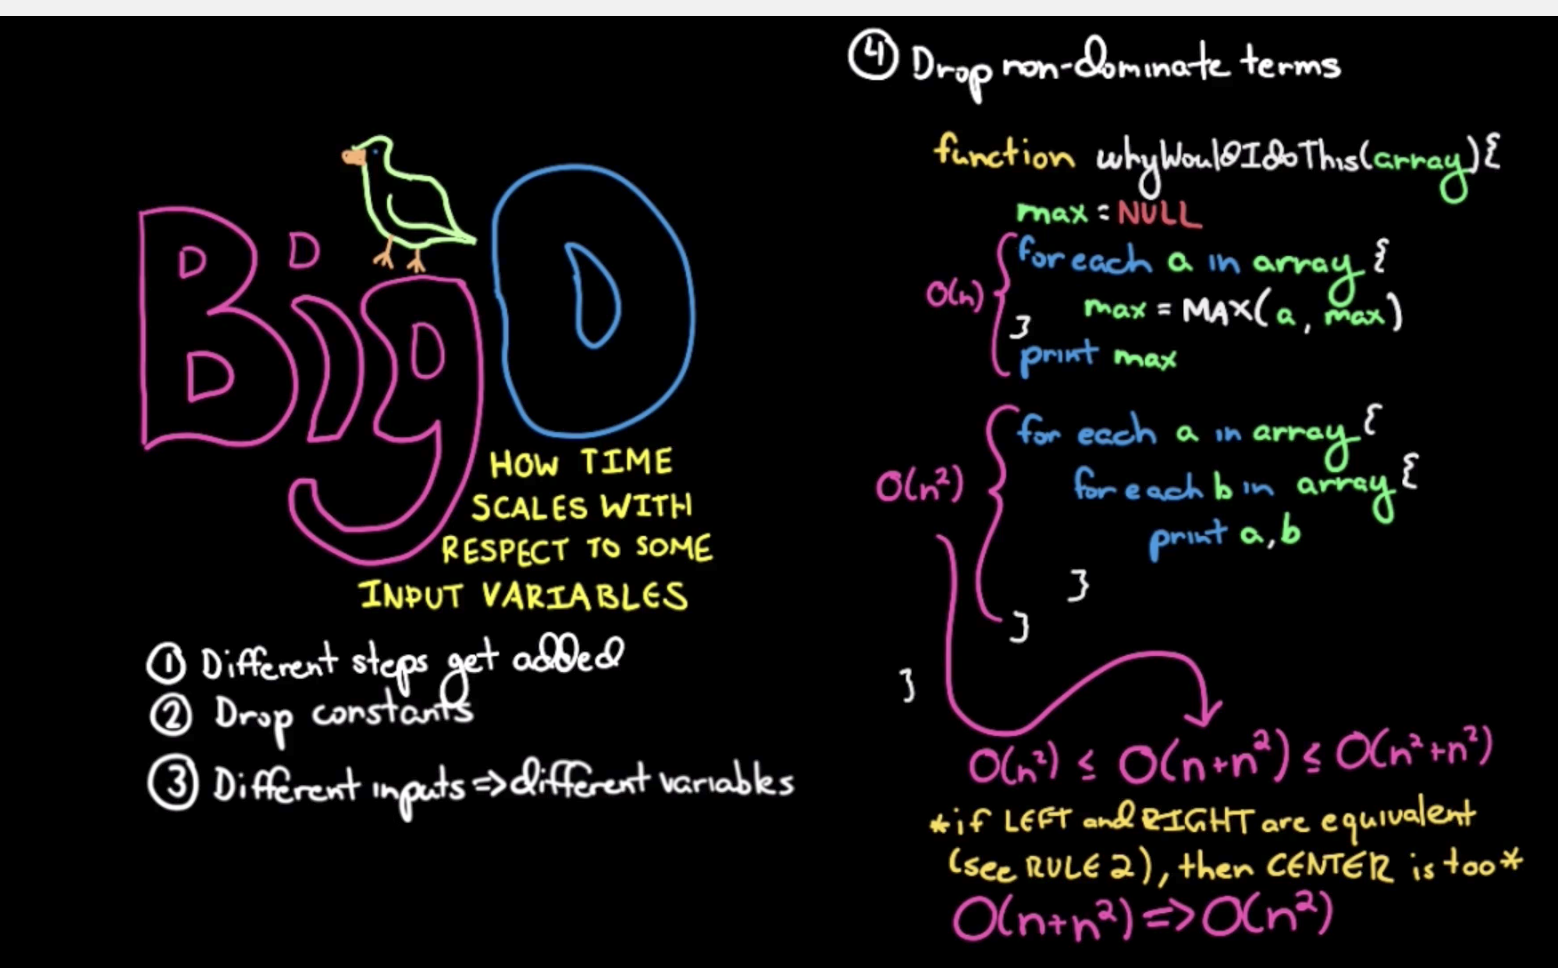 Big O
HOW TIME
SCALES WITH
RESPECT TO SOME
INPUT VARIABLES
① Different steps get added
② Drop constants
③ Different inputs => different variables
④ Drop non-dominate terms
function whyWouldIdoThis(array){
max = NULL
for each a in array {
O(n)
max = MAX(a, max)
}
print max
for each a in array {
O(n²)
for each b in array {
print a,b
}
}
}
O(n²) ≤ O(n+n²) ≤ O(n²+n²)
*if LEFT and RIGHT are equivalent
(see RULE 2), then CENTER is too*
O(n+n²) => O(n²)